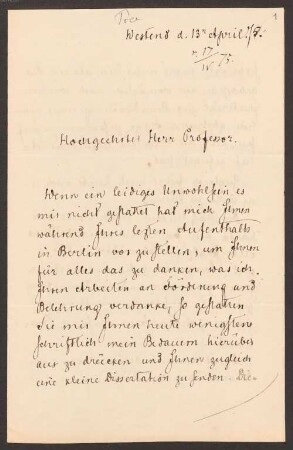 1
Westend d. 13ten April 75.
17/IV 75.
Hochgeehrter Herr Professor.
Wenn ein leidiges Unwohlsein es
mir nicht gestattet hat mich Ihnen
während Ihres letzten Aufenthalts
in Berlin vorzustellen, um Ihnen
für alles das zu danken, was ich
Ihren Arbeiten an Förderung und
Belehrung verdanke, so gestatten
Sie mir Ihnen heute wenigstens
schriftlich mein Bedauern hierüber
aus zu drücken und Ihnen zugleich
eine kleine Dissertation zu senden. Die-